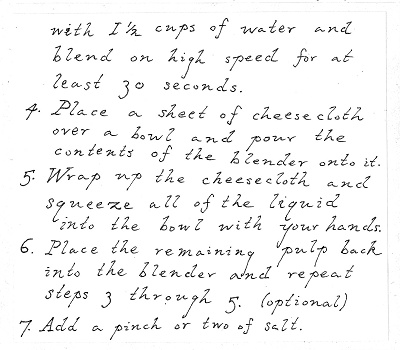 with 1½ cups of water and
blend on high speed for at
least 30 seconds.
4. Place a sheet of cheesecloth
over a bowl and pour the
contents of the blender onto it.
5. Wrap up the cheesecloth and
squeeze all of the liquid
into the bowl with your hands.
6. Place the remaining pulp back
into the blender and repeat
steps 3 through 5. (optional)
7. Add a pinch or two of salt.